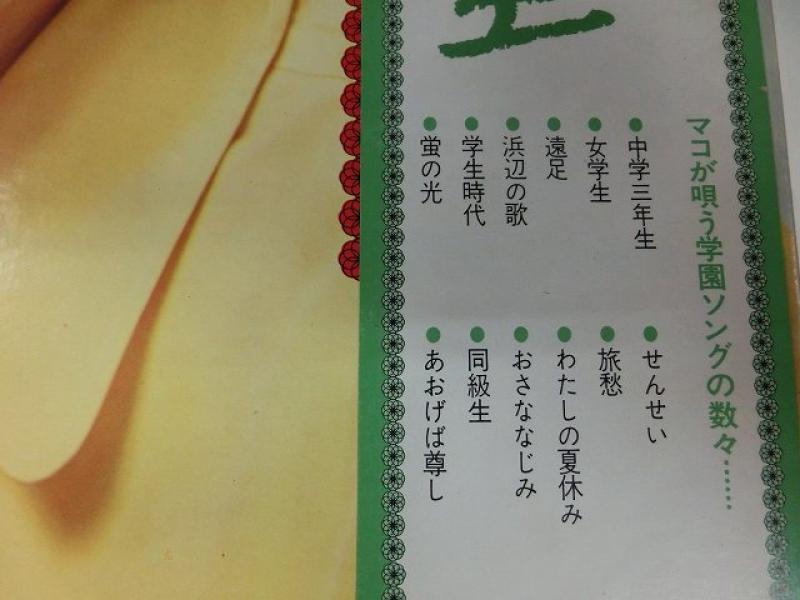 マコが唄う学園ソングの数々……
●中学三年生
●女学生
●遠足
●浜辺の歌
●学生時代
●蛍の光
●せんせい
●旅愁
●わたしの夏休み
●おさななじみ
●同級生
●あおげば尊し